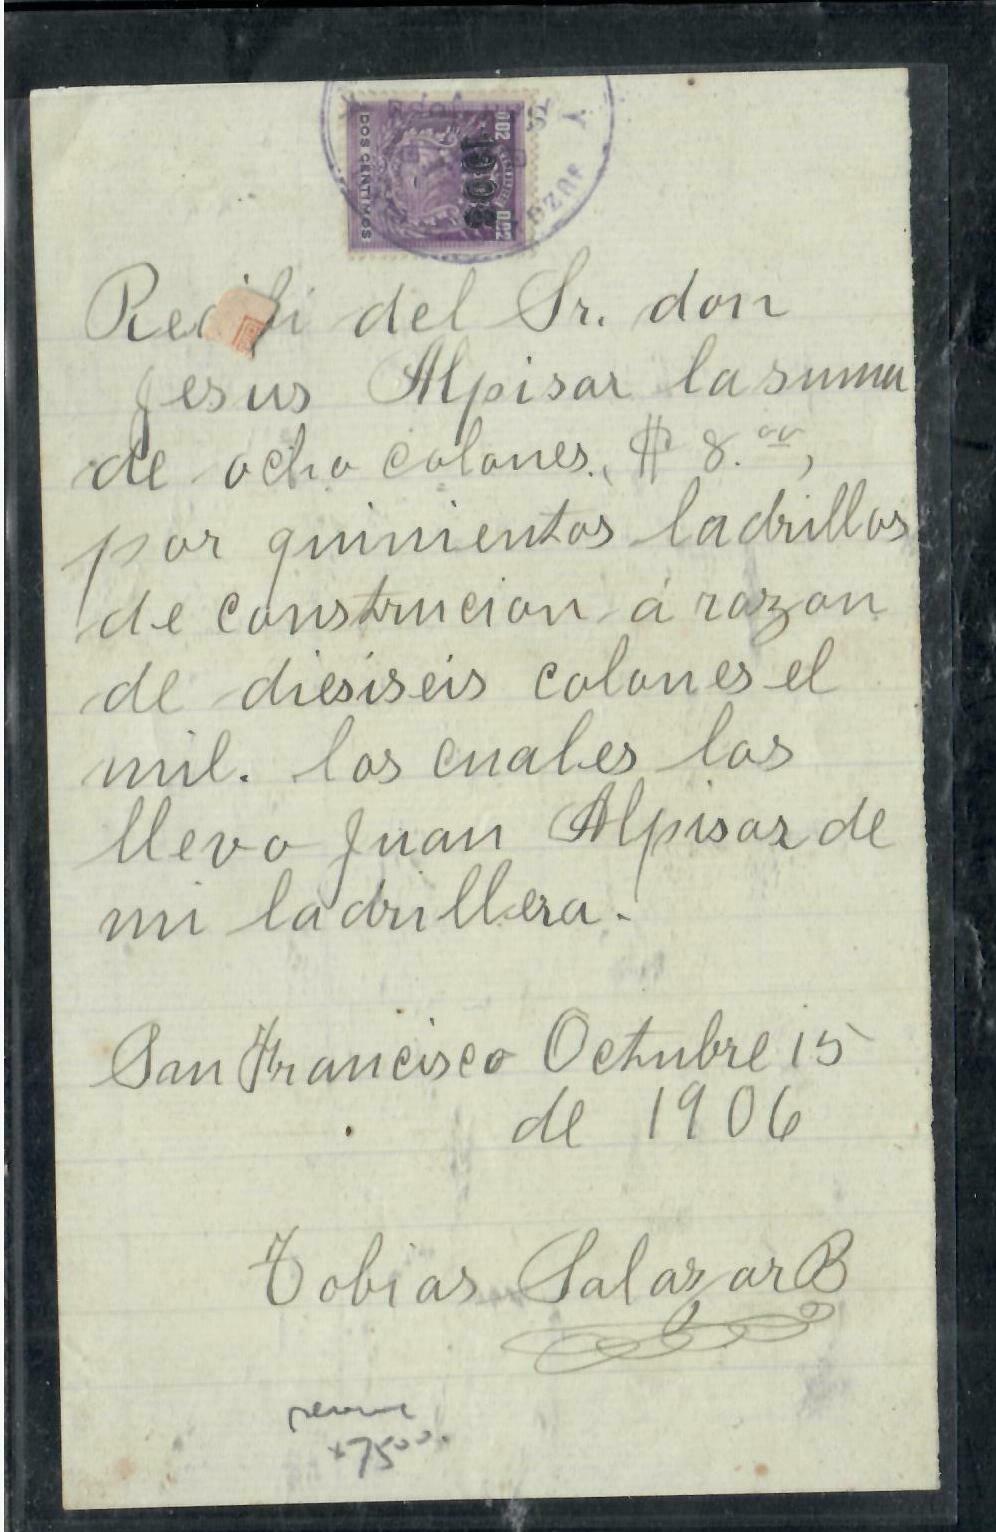 DOS CENTIMOS
002 002
1905
Recibi del Sr. don
Jesus Alpisar la suma
de ocho colones, $ 8.00,
por quinientos ladrillos
de construcion á razon
de diesiseis colones el
mil. los cuales los
llevo Juan Alpisar de
mi ladrillera.
San Francisco Octubre 15
de 1906
Tobias Salazar B
7500.